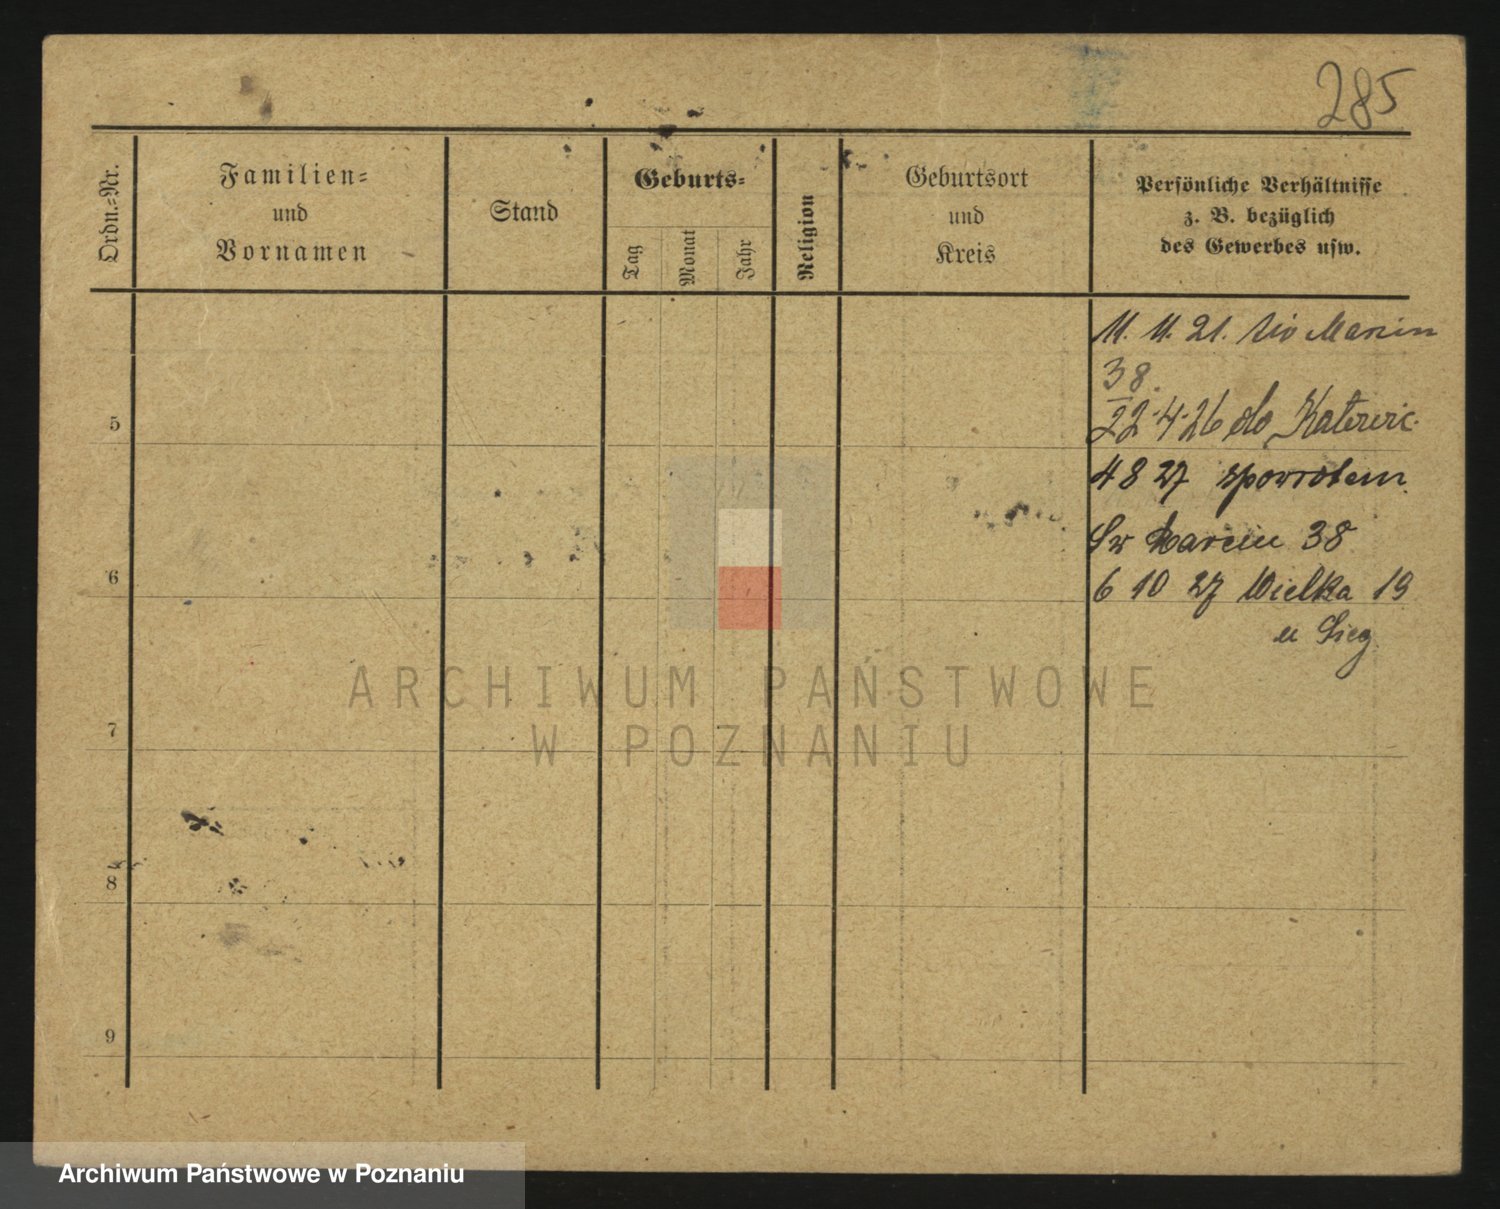 285
Ordn.-Nr.
Familien-
und
Vornamen
Stand
Geburts-
Tag
Monat
Jahr
Religion
Geburtsort
und
Kreis
Persönliche Verhältnisse
z. B. bezüglich
des Gewerbes usw.
11. 11. 21. Marcin
38.
5
22-4-26 do Katowic.
4 8 27 spowrotem.
Sw Marcin 38
6
6 10 27 Wielka 19
u
7
8
9
ARCHIWUM PAŃSTWOWE
W POZNANIU
Archiwum Państwowe w Poznaniu